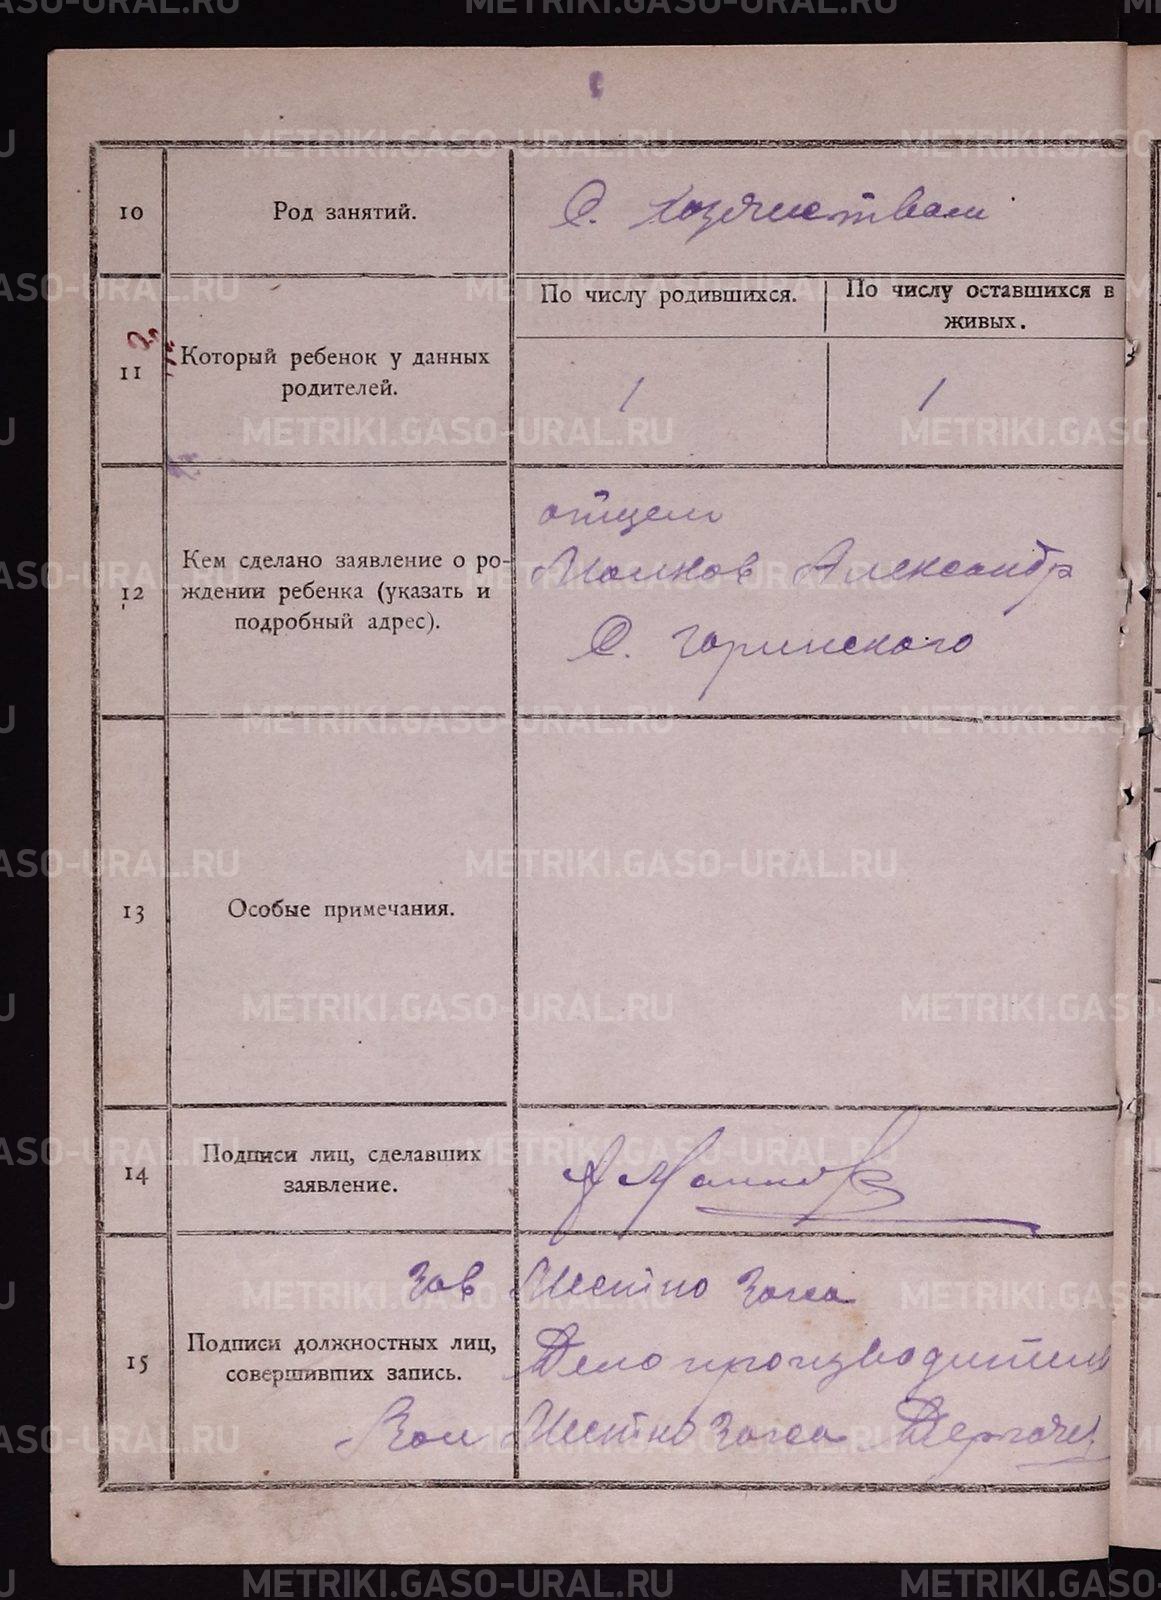 METRIKI.GASO-URAL.RU
10
Род занятий.
С. хозяйством
11
Который ребенок у данных
родителей.
По числу родившихся.
По числу оставшихся в
живых.
1
1
12
Кем сделано заявление о ро-
ждении ребенка (указать и
подробный адрес).
отцем
Александр
С. Гаринского
13
Особые примечания.
14
Подписи лиц, сделавших
заявление.
15
Подписи должностных лиц,
совершивших запись.
Зав
Делопроизводитель